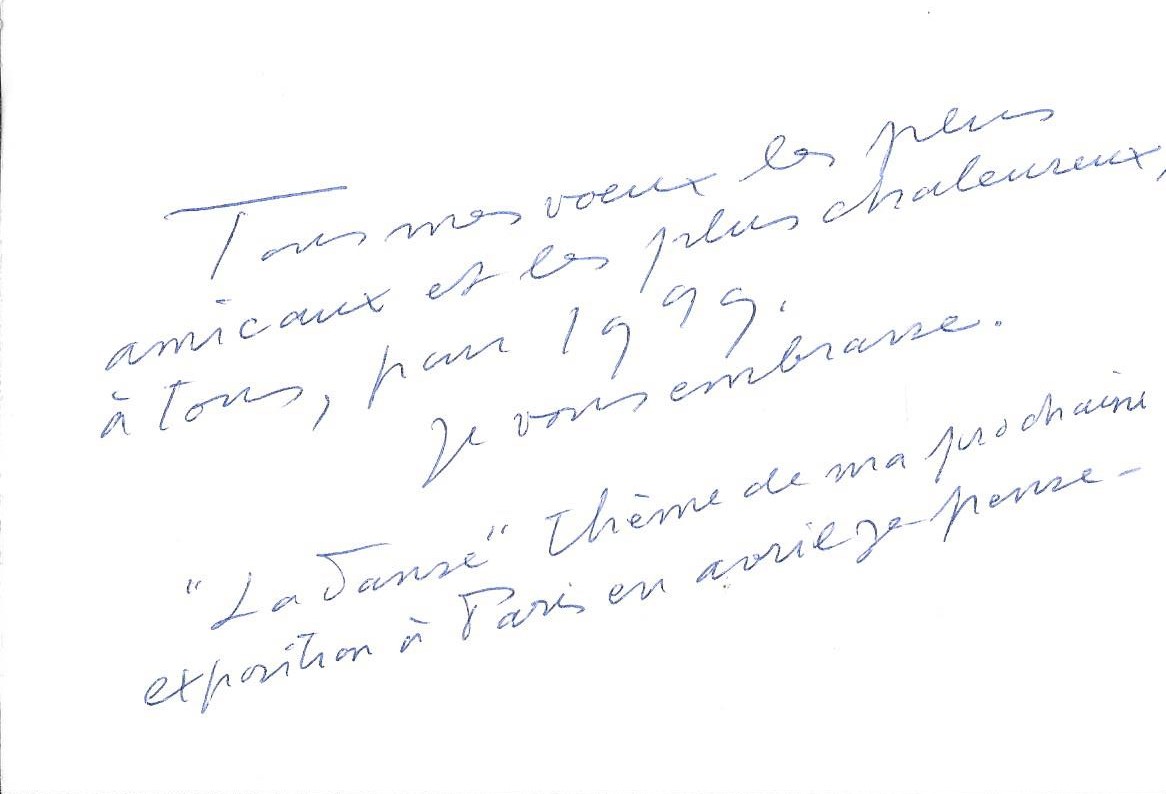 Tous mes voeux les plus
amicaux et les plus chaleureux,
à tous, pour 1999.
Je vous embrasse.
"La Danse" thème de ma prochaine
exposition à Paris en avril je pense -